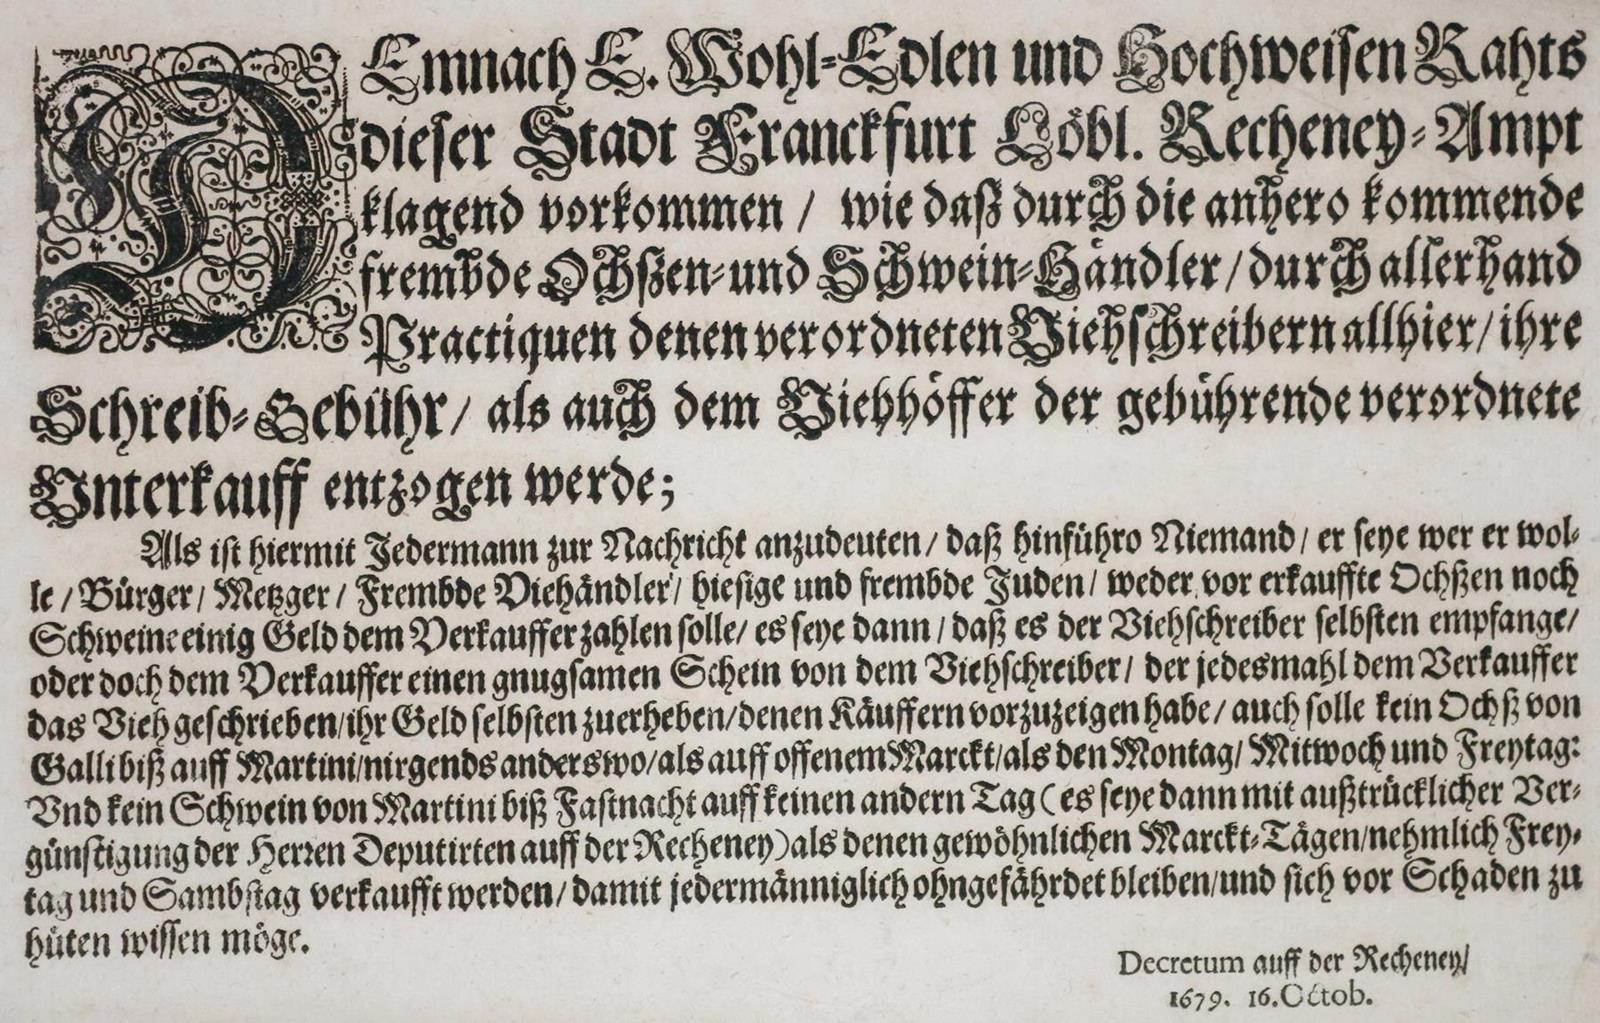 DEmnach E. Wohl-Edlen und Hochweisen Rahts
dieser Stadt Franckfurt Löbl. Recheney-Ampt
klagend vorkommen / wie daß durch die anhero kommende
frembde Ochßen- und Schwein-Händler / durch allerhand
Practiquen denen verordneten Viehschreibern allhier / ihre
Schreib-Gebühr / als auch dem Viehhöffer der gebührende verordnete
Vnterkauff entzogen werde;
Als ist hiermit Jedermann zur Nachricht anzudeuten / daß hinführo Niemand / er seye wer er wol-
le / Bürger / Metzger / Frembde Viehändler / hiesige und frembde Juden / weder vor erkauffte Ochßen noch
Schweine einig Geld dem Verkauffer zahlen solle / es seye dann / daß es der Viehschreiber selbsten empfange /
oder doch dem Verkauffer einen gnugsamen Schein von dem Viehschreiber / der jedesmahl dem Verkauffer
das Vieh geschrieben / ihr Geld selbsten zuerheben / denen Käuffern vorzuzeigen habe / auch solle kein Ochß von
Galli biß auff Martini / nirgends anderswo / als auff offenem Marckt / als den Montag / Mittwoch und Freytag:
Vnd kein Schwein von Martini biß Fastnacht auff keinen andern Tag ( es seye dann mit außtrücklicher Ver-
günstigung der Herren Deputirten auff der Recheney ) als denen gewöhnlichen Marckt-Tägen / nehmlich Frey-
tag und Sambstag verkaufft werden / damit jedermänniglich ohngefährdet bleiben / und sich vor Schaden zu
hüten wissen möge.
Decretum auff der Recheney /
1679. 16. Octob.